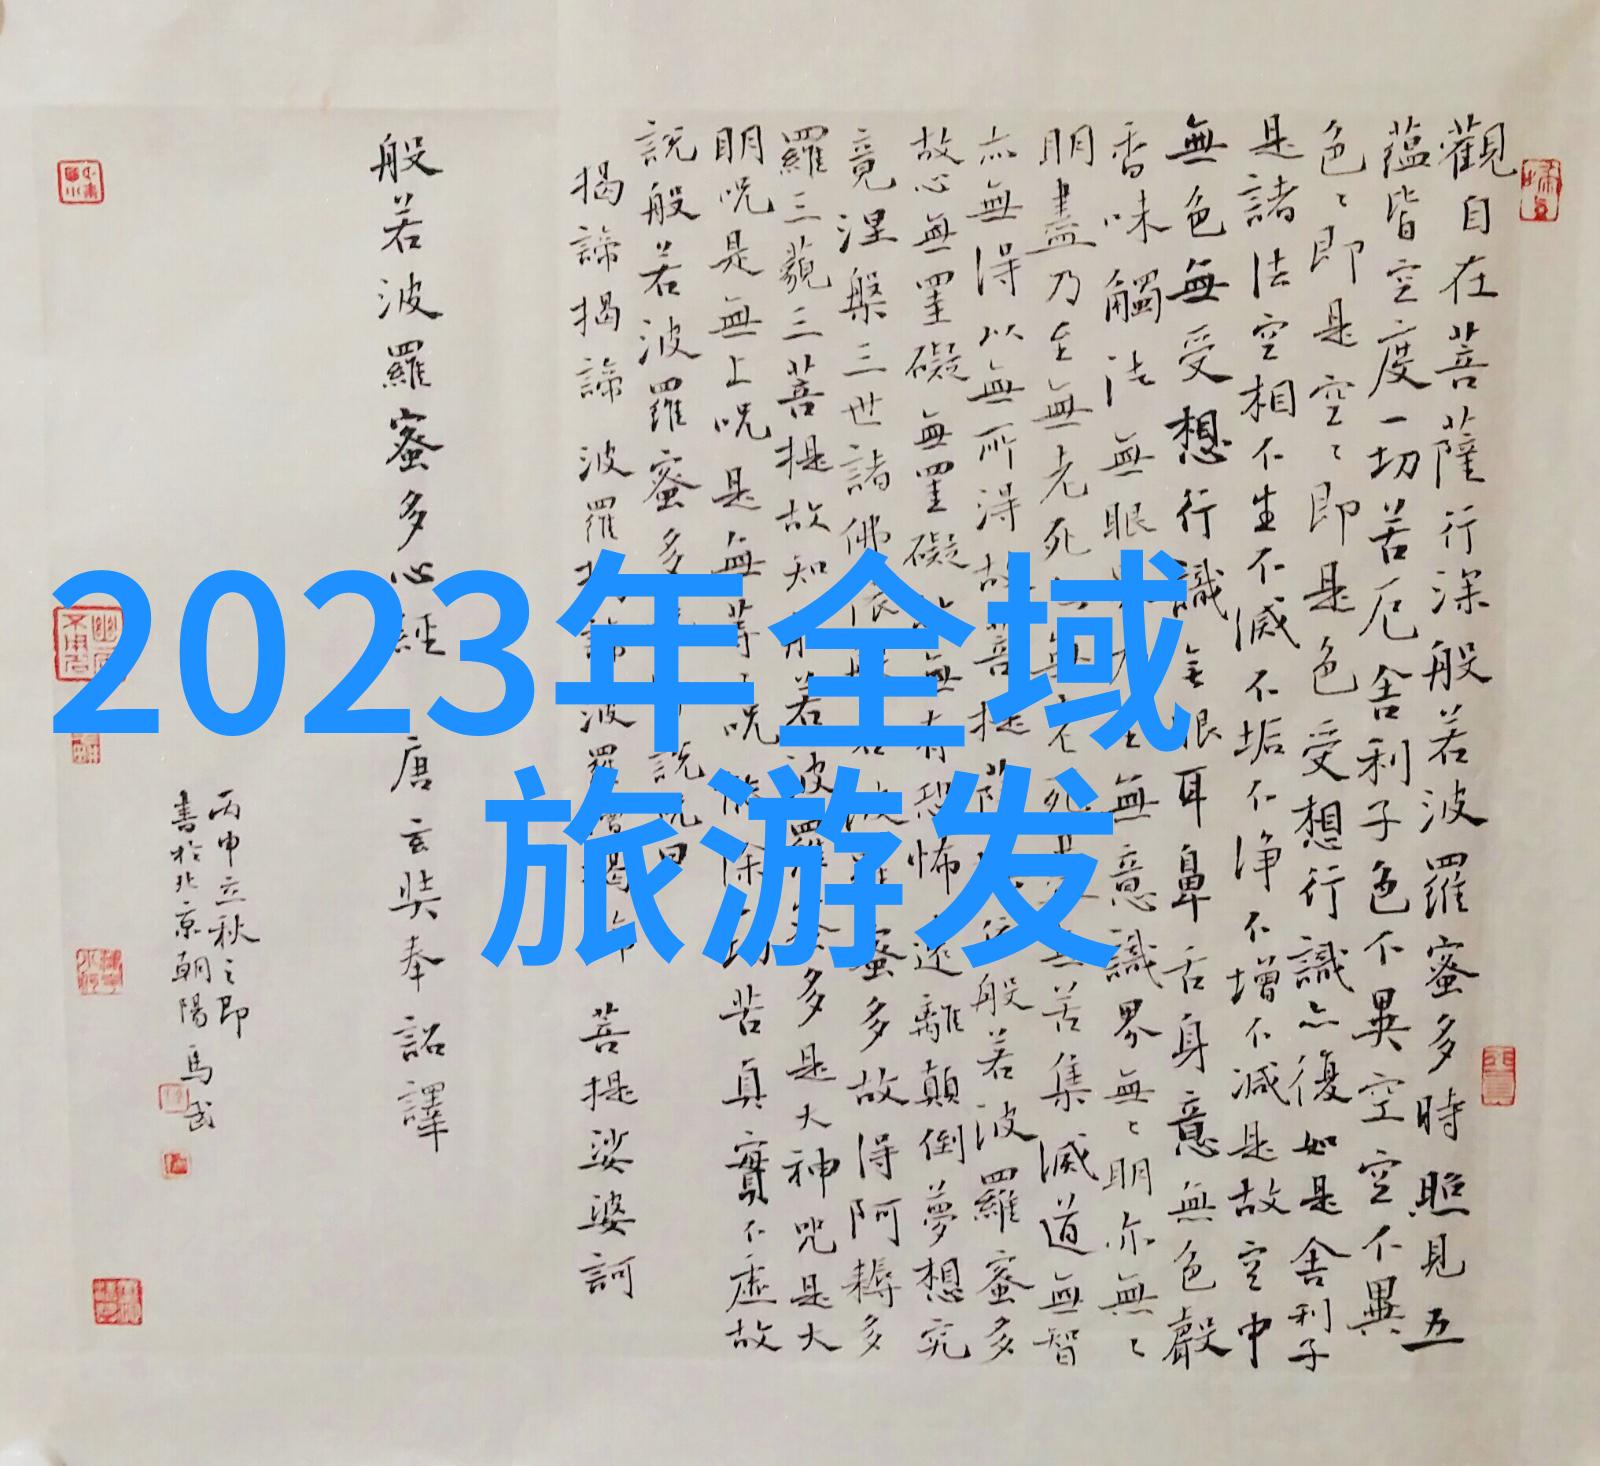 觀自在菩薩行深般若波羅蜜多時照見五
蘊皆空度一切苦厄舍利子色不異空空不異
色〻即是空〻即是色受想行識亦復如是舍利子
是諸法空相不生不滅不垢不净不增不減是故空中
無色無受想行識無眼耳鼻舌身意無色聲
香味觸法無眼界乃至無意識界無〻明亦無〻
明盡乃至無老死亦無老死盡無苦集滅道無智
亦無得以無所得故菩提薩依般若波羅蜜多
故心無罣礙無罣礙故無有恐怖遠離顛倒夢想究
竟涅槃三世諸佛依般若波羅蜜多故得阿耨多
羅三藐三菩提故知般若波羅蜜多是大神咒是大
明呪是無上呪是無等呪能除一切苦真實不虛故
說般若波羅蜜多即說呪曰
揭諦揭諦波羅揭諦波羅僧揭諦菩提娑婆訶
般若波羅蜜多心經 唐玄奘奉詔譯
丙申立秋之即
書於北京朝陽 馬武
2023年全域
旅游发